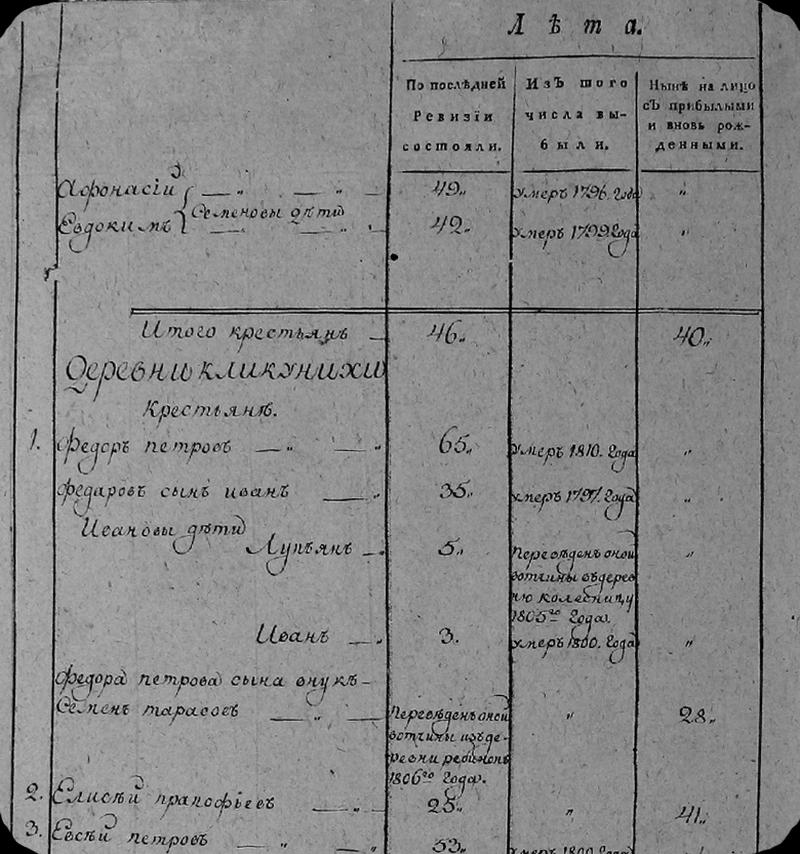 Лѣта.
По послѣдней Ревизіи состояли.
Изъ того числа выбыли.
Нынѣ на лицо съ прибылыми и вновь рожденными.
Афонасій — „ — „ 49„ умеръ 1796. Года „
Семеновы дѣти
Евдокимъ — „ — „ 42„ умеръ 1799 Года „
Итого крестьянъ — 46„ 40„
Деревни кликунихи
Крестьянѣ.
1. Федоръ петровъ — „ — „ 65„ умеръ 1810. Года „
Федаровъ сынъ иванъ — „ 35„ умеръ 1797. Года „
Ивановы дѣти
Лупьянъ — „ 5„ Переведенъ оной „
вотчины въ дерев
ню колесницу
1805го Года.
Иванъ — „ 3. умеръ 1800. Года „
Федора петрова сына внукъ —
Семенъ тарасовъ — „ — Переведенъ оной „ 28„
вотчины изъ де-
ревни
1806го Года.
2. Елисѣй — „ 25„ „ 41„
3. Евсѣй петровъ — „ — „ 53„ умеръ 1800 Года